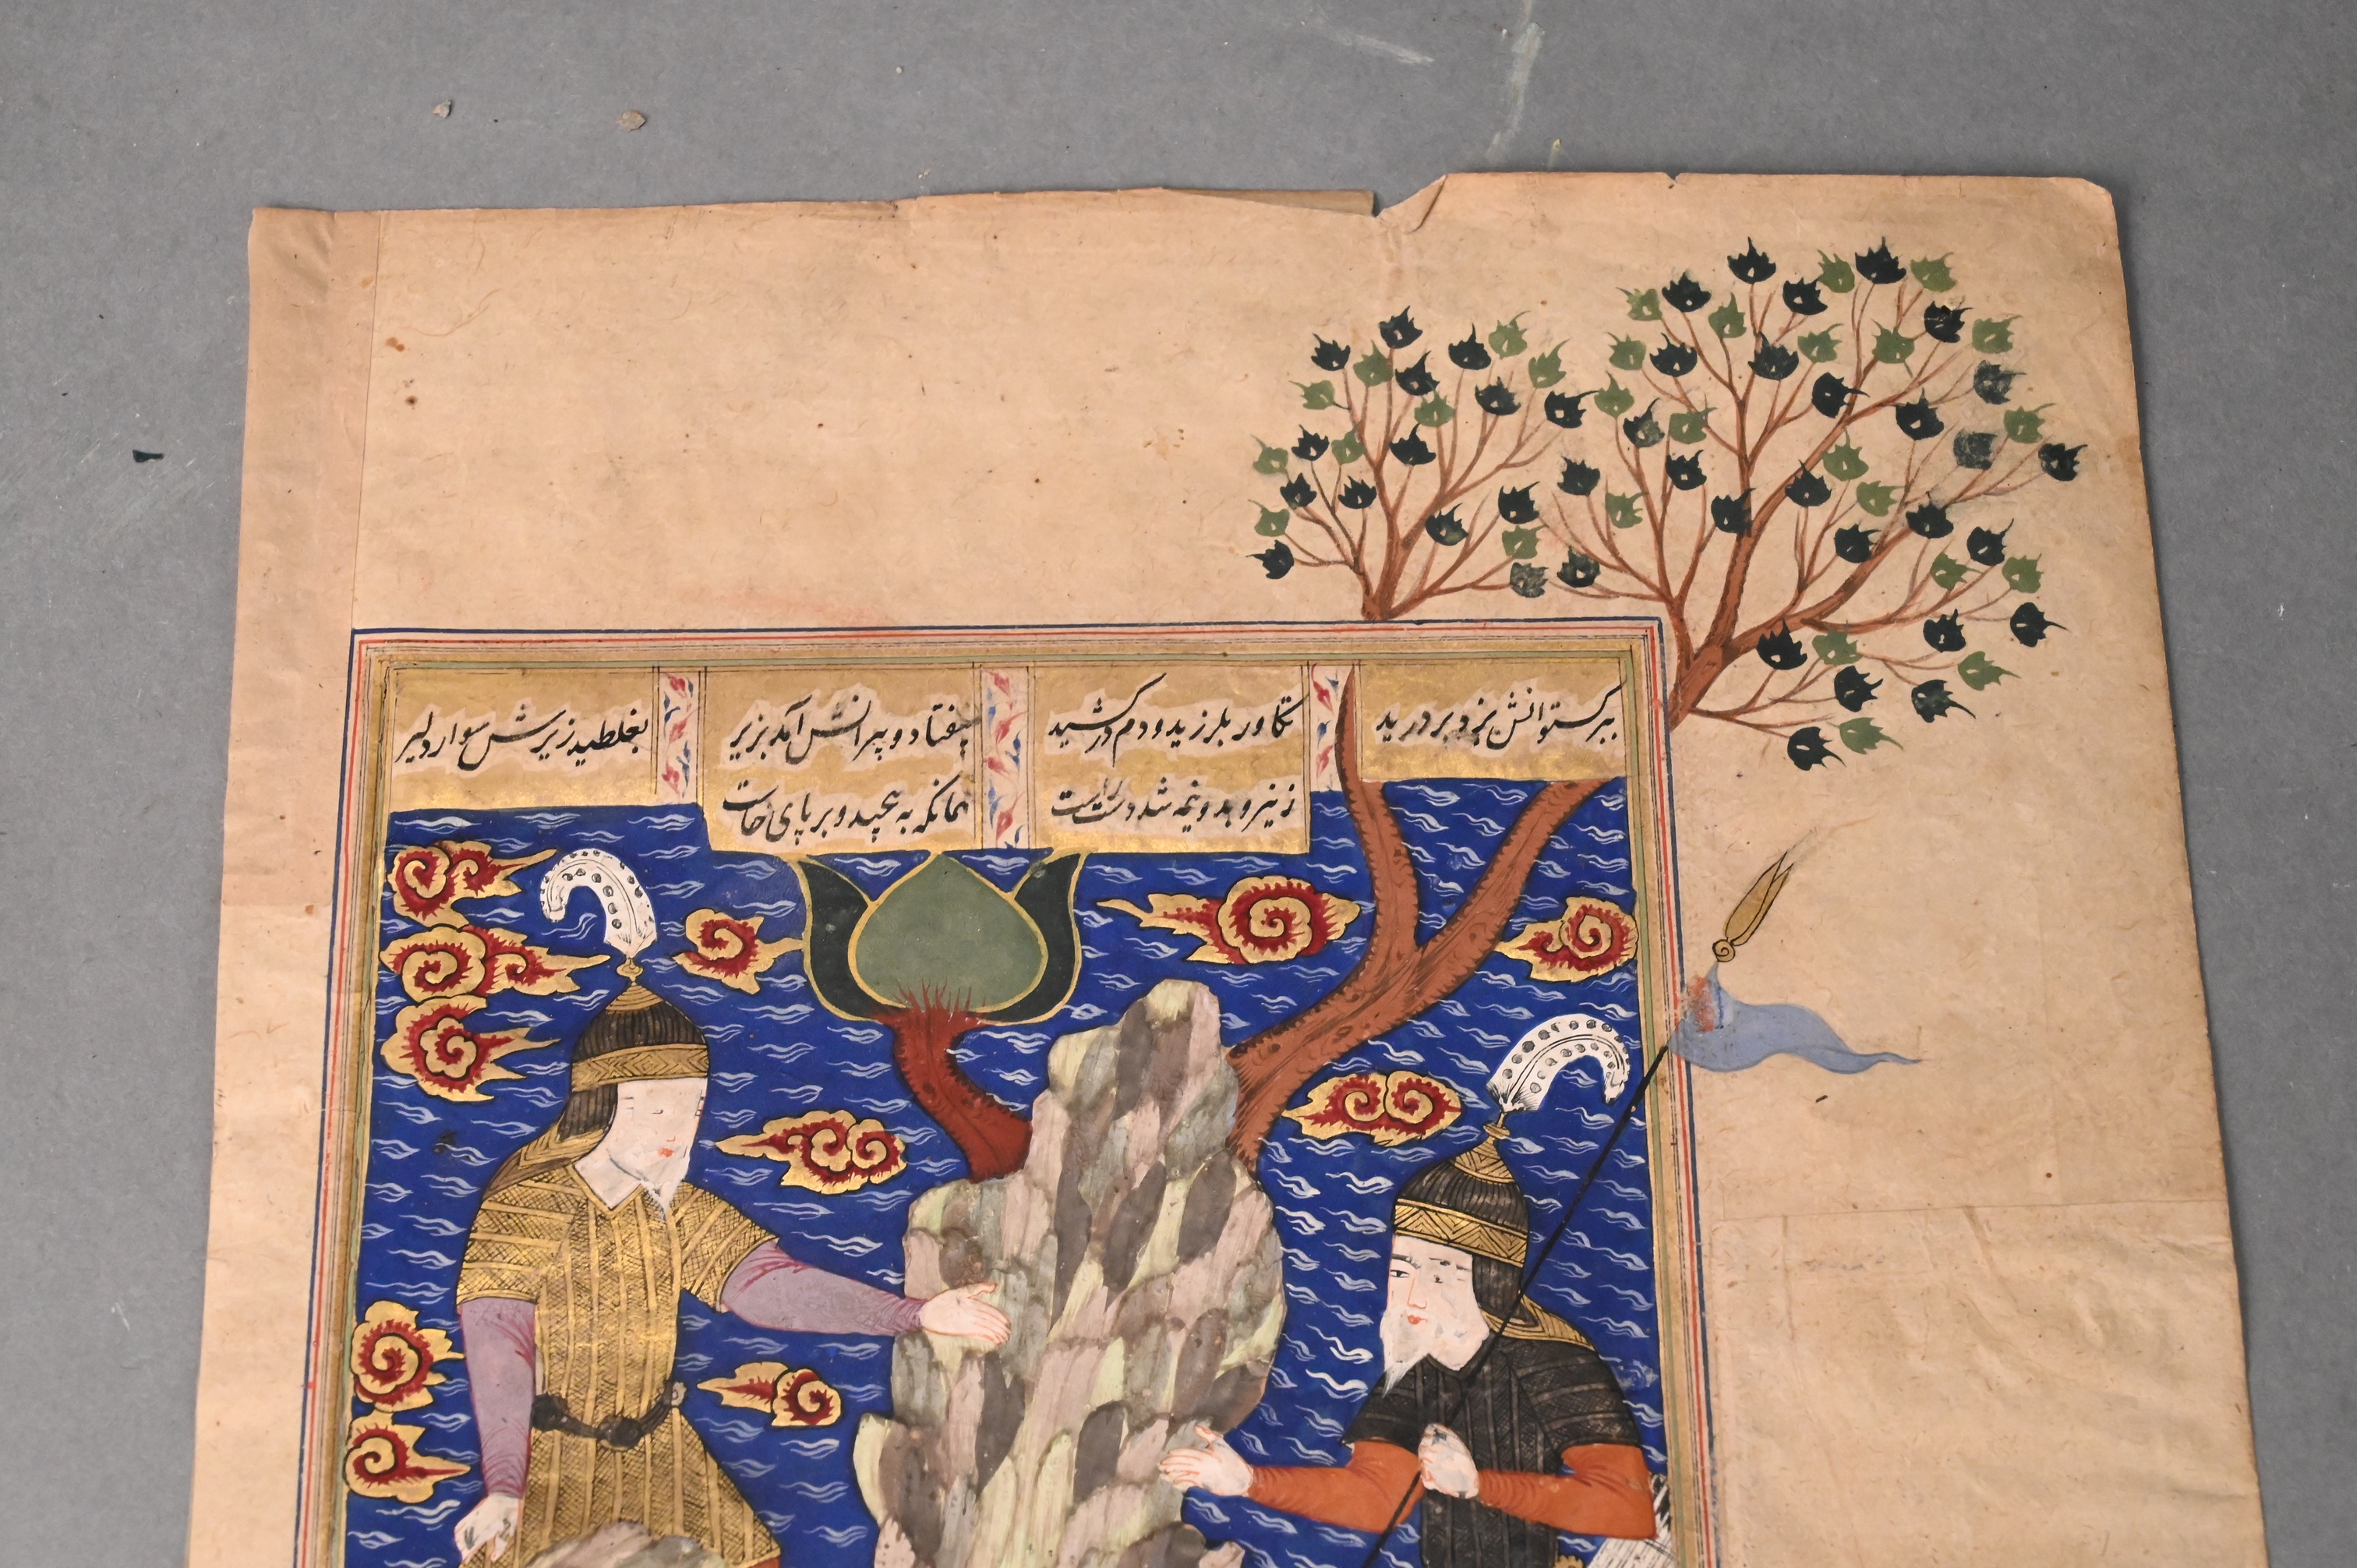 ببرکستوانش بزد بردرید تکاور بلرزید و دم درکشید بیفتاد و پیرانش آمد بزیر بغلطید زیرش سوار دلیر
ز نیرو بدو نیمه شد دست راست همانکه به پیچید و بر پای خاست